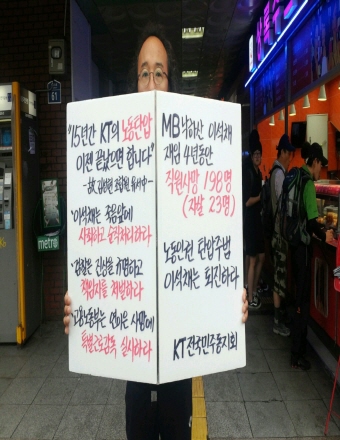 "15년간 KT의 노동탄압
이젠 끝났으면 합니다"
-故 김성현 조합원 유서中-
·이석채는 죽음앞에
사죄하고 순직처리하라
·검찰은 진상을 규명하고
책임자를 처벌하라
·고용노동부는 연이은 사망에
특별근로감독 실시하라
MB낙하산 이석채
재임 4년동안
직원사망 198명
(자살 23명)
노동인권 탄압주범
이석채는 퇴진하라
KT전국민주동지회
metro